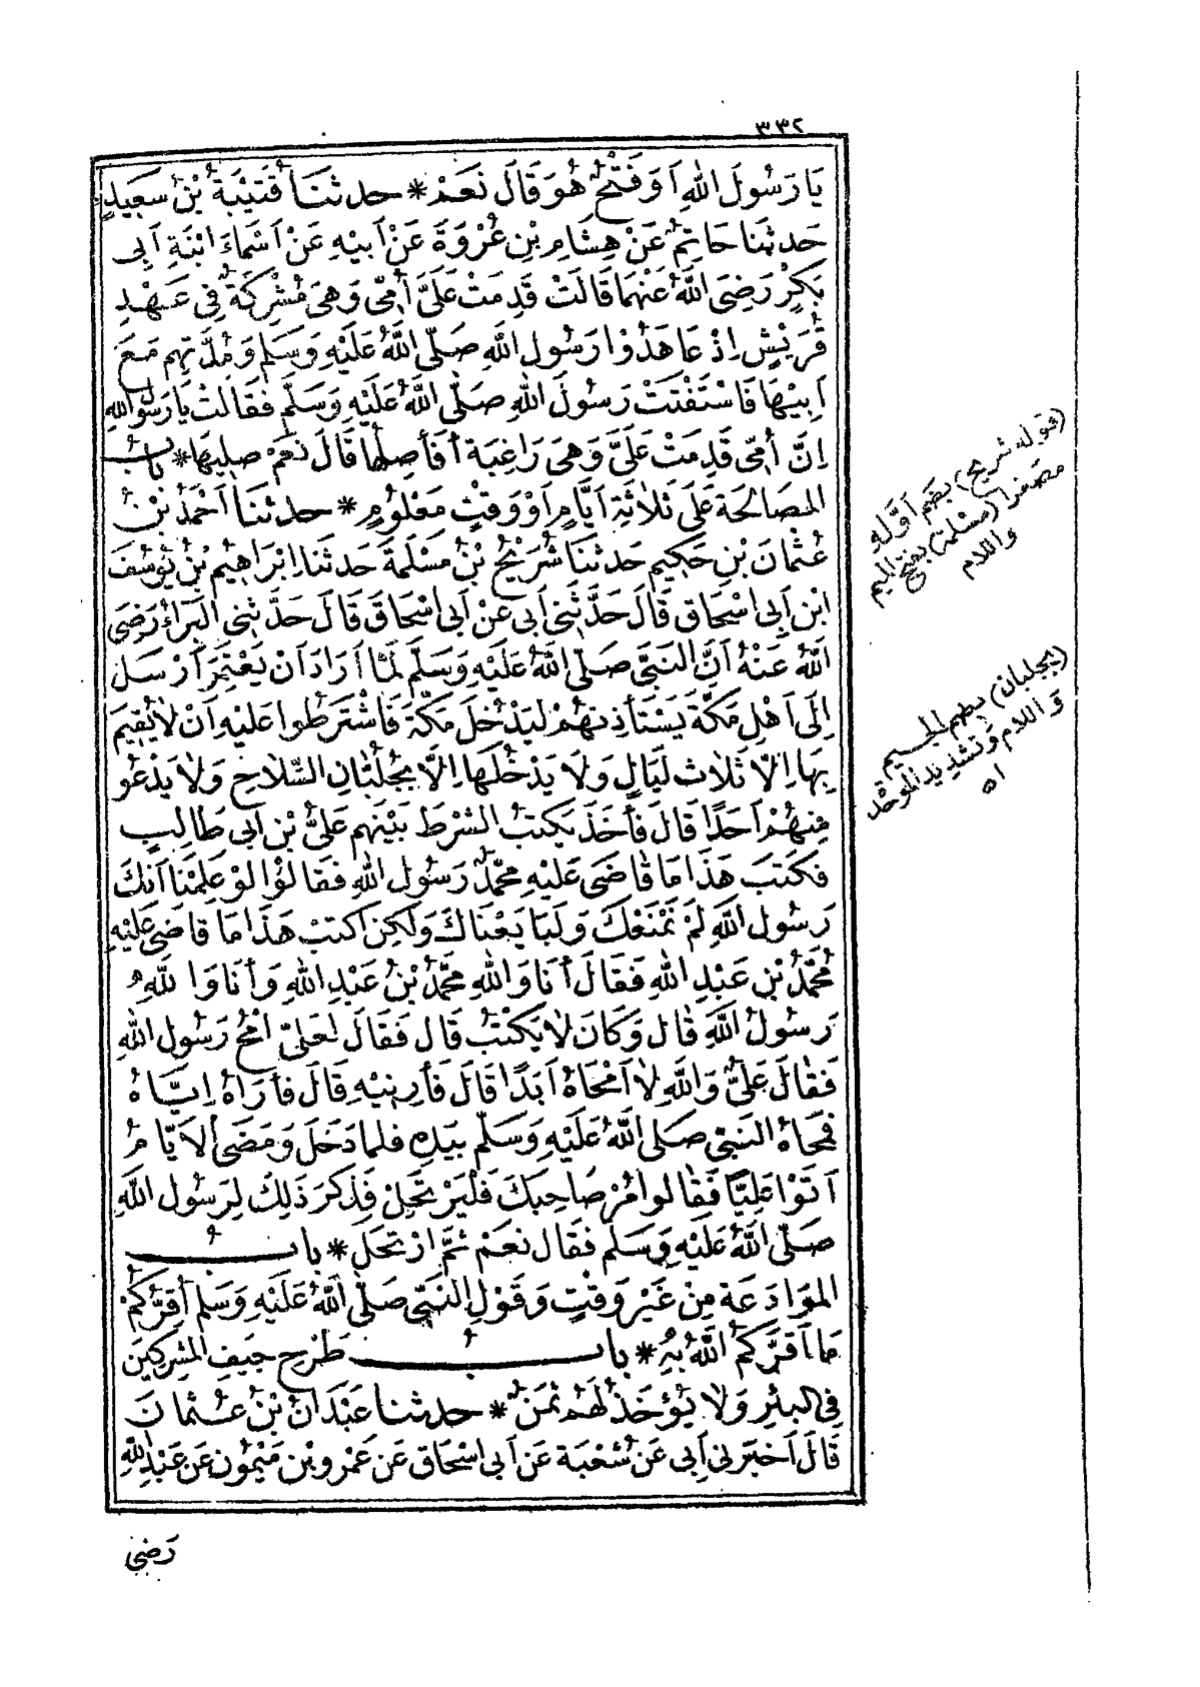 ٣٣٢
يَا رَسُولَ اللهِ أَوَ فَتْحٌ هُوَ قَالَ نَعَمْ * حدثَنَا قُتَيْبَةُ بْنُ سَعِيدٍ
حَدثنَا حَاتِمٌ عَنْ هِشَامِ بْنِ عُرْوَةَ عَنْ أَبِيهِ عَنْ أَسْمَاءَ ابْنَةِ أَبِى
بَكْرٍ رَضِىَ اللهُ عَنْهُمَا قَالَتْ قَدِمَتْ عَلَىَّ أُمِّى وَهِىَ مُشْرِكَةٌ فِى عَهْدِ
قُرَيْشٍ إِذْ عَاهَدُوا رَسُولَ اللهِ صَلَّى اللهُ عَلَيْهِ وَسَلم وَمُدَّتِهِم مَعَ
أَبِيْهَا فَاسْتَفْتَتْ رَسُولَ اللهِ صَلَّى اللهُ عَلَيْهِ وَسَلَّم فَقَالَتْ يَا رَسُولَ اللهِ
إِنَّ أُمِّى قَدِمَتْ عَلَىَّ وَهِىَ رَاغِبَة أَفَأَصِلُهَا قَالَ نَعَمْ صِلِيهَا * بابُ
المصَالحَة عَلَى ثَلاثَةِ أَيَّامٍ أَوْ وَقْتٍ مَعْلُومٍ * حدثنَا أَحْمَدُ بْنُ
عُثْمَانَ بْنِ حَكِيمٍ حَدثنَا شُرَيْحُ بْنُ مَسْلَمَةَ حَدثنَا إِبْرَاهِيمُ بْنُ يُوسُفَ
ابْنِ أَبِى إِسْحَاقَ قَالَ حَدَّثَنِى أَبِى عَنْ أَبِى إِسْحَاقَ قَالَ حَدَّثَنِى البَرَاءُ رَضِىَ
اللهُ عَنْهُ أَنَّ النَّبِىَّ صَلَّى اللهُ عَلَيْهِ وَسَلَّم لَمَّا أَرَادَ أَنْ يَعْتَمِرَ أَرْسَلَ
إِلَى أَهْلِ مَكَّةَ يَسْتَأْذِنُهُمْ لِيَدْخُلَ مَكَّةَ فَاشْتَرَطُوا عَلَيْهِ أَنْ لَا يُقِيمَ
بِهَا إِلَّا ثَلَاثَ لَيَالٍ وَلَا يَدْخُلَهَا إِلَّا بِجُلُبَّانِ السِّلَاحِ وَلَا يَدْعُوَ
مِنْهُمْ أَحَدًا قَالَ فَأَخَذَ يَكْتُبُ الشَّرْطَ بَيْنَهُم عَلِىُّ بْنُ أَبِى طَالِبٍ
فَكَتَبَ هَذَا مَا قَاضَى عَلَيْهِ مُحَمَّدٌ رَسُولُ اللهِ فَقَالُوا لَوْ عَلِمْنَا أَنَّكَ
رَسُولُ اللهِ لَمْ نَمْنَعْكَ وَلَبَايَعْنَاكَ وَلَكِنْ اكْتُبْ هَذَا مَا قَاضَى عَلَيْهِ
مُحَمَّدُ بْن عَبْدِ اللهِ فَقَالَ أَنَا وَاللهِ مُحَمَّدُ بْنُ عَبْدِ اللهِ وَأَنَا وَاللهِ
رَسُولُ اللهِ قَال وَكَانَ لَا يَكْتُبُ قَالَ فَقَالَ لِعَلىّ امْحُ رَسُولَ اللهِ
فَقَالَ عَلِىٌّ وَاللهِ لَا أَمْحَاهُ أَبَدًا قَالَ فَأَرِنِيْهِ قَالَ فَأَرَاهُ إِيَّاهُ
فَمَحَاهُ النَبِىُّ صَلَى اللهُ عَلَيْهِ وَسَلَّم بِيَدِهِ فَلَمَّا دَخَلَ وَمَضَى الأَيَّامُ
أَتَوْا عَلِيًّا فَقَالُوا مُرْ صَاحِبَكَ فَلْيَرْتَحِلْ فَذَكَرَ ذَلِكَ لِرَسُولِ اللهِ
صَلَّى اللهُ عَلَيْهِ وَسَلم فَقَال نَعَمْ ثُمَّ ارْتَحَلَ * بابُ
المُوَادَعَةِ مِنْ غَيْرِ وَقْتٍ وَقَوْلِ النَّبِىِّ صَلَّى اللهُ عَلَيْهِ وَسَلم أُقِرُّكُمْ
مَا أَقَرَّكُمُ اللهُ بِهِ * بابُ طَرْحِ جِيَفِ المشْرِكِينَ
فِى البِئْرِ وَلَا يُؤْخَذُ لَهُمْ ثَمَنٌ * حدثنا عَبْدَانُ بْنُ عُثْمَانَ
قَالَ أَخْبَرَنِى أَبِى عَنْ شُعْبَة عَنْ أَبِى إِسْحَاقَ عَنْ عَمْرِو بْنِ مَيْمُونٍ عَنْ عَبْدِ اللهِ
رَضِىَ
(قوله شريح) بضم أوّله
مصغرا (مسلمة) بفتح الميم
واللام
(بجلبان) بضم الجيم
واللام وتشديد الموحدة
اه